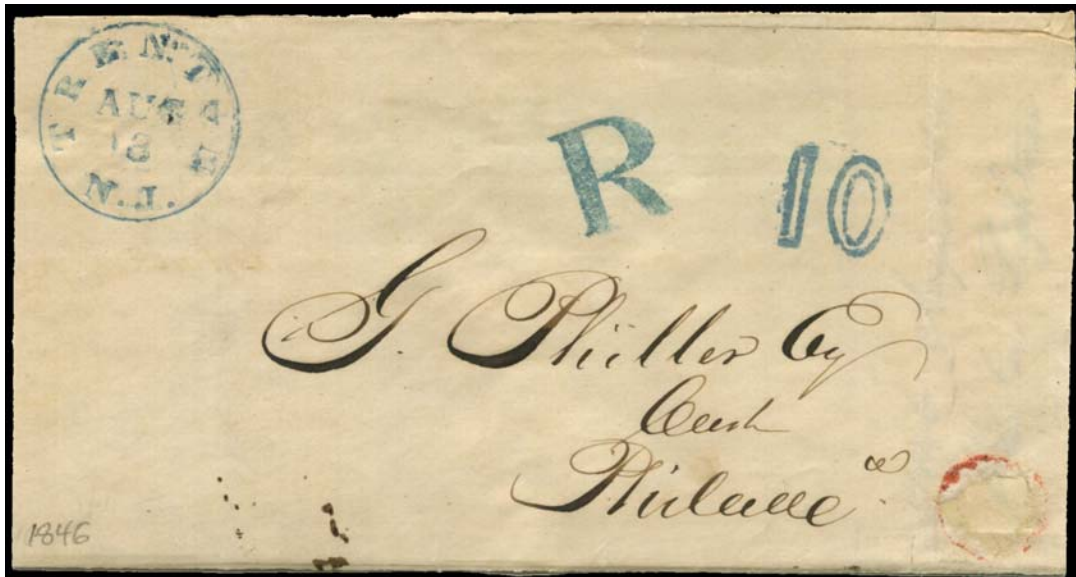 TRENTON
AUG
18
N.J.
R 10
G. Philler Esq
Cash
Philada
1846